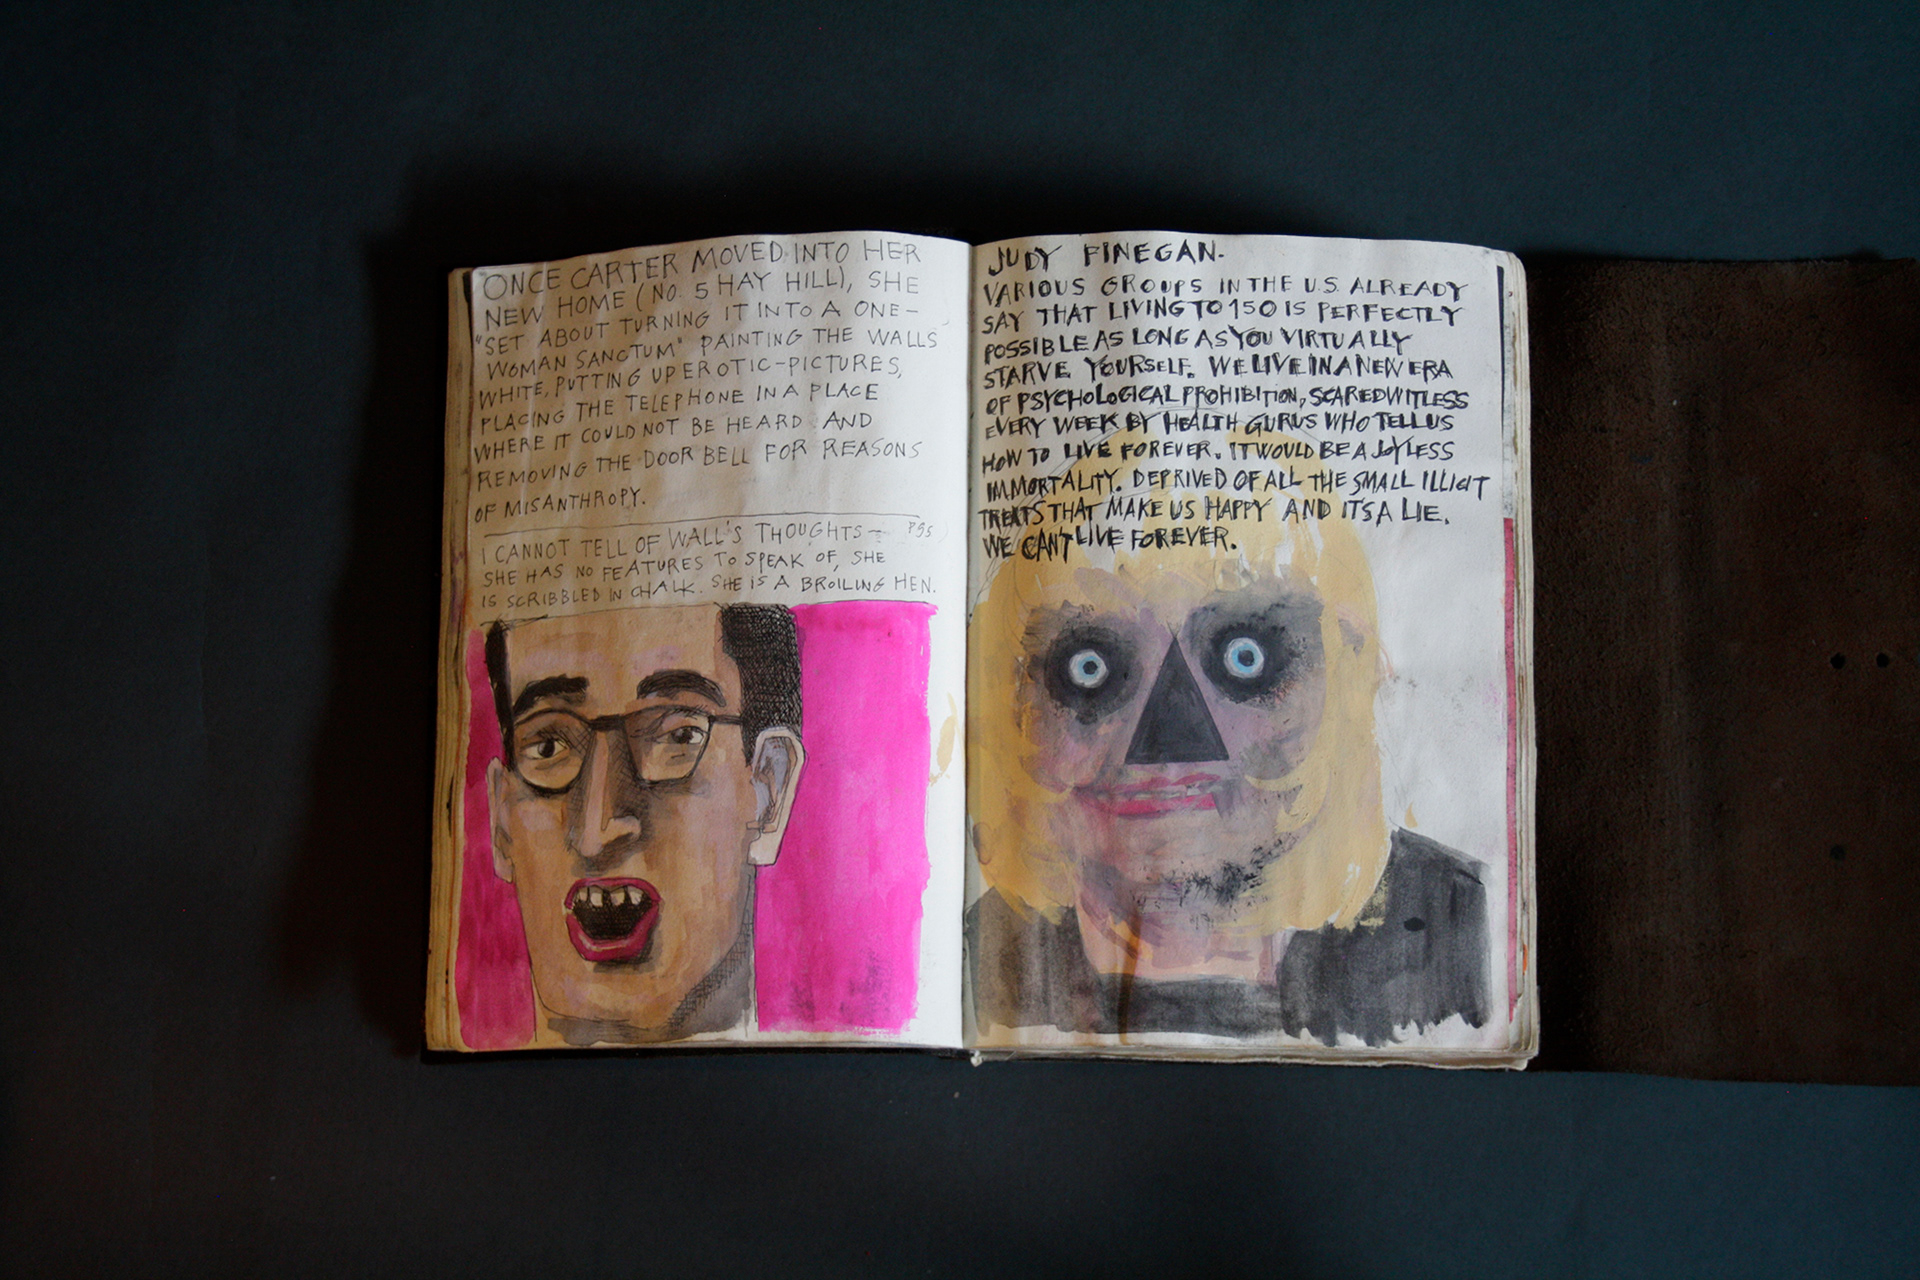 ONCE CARTER MOVED INTO HER
NEW HOME (NO. 5 HAY HILL), SHE
"SET ABOUT TURNING IT INTO A ONE-
WOMAN SANCTUM" PAINTING THE WALLS
WHITE, PUTTING UP EROTIC-PICTURES,
PLACING THE TELEPHONE IN A PLACE
WHERE IT COULD NOT BE HEARD AND
REMOVING THE DOOR BELL FOR REASONS
OF MISANTHROPY.
I CANNOT TELL OF WALL'S THOUGHTS—
SHE HAS NO FEATURES TO SPEAK OF, SHE
IS SCRIBBLED IN CHALK. SHE IS A BROILING HEN.
JUDY FINEGAN.
VARIOUS GROUPS IN THE U.S. ALREADY
SAY THAT LIVING TO 150 IS PERFECTLY
POSSIBLE AS LONG AS YOU VIRTUALLY
STARVE YOURSELF. WE LIVE IN A NEW ERA
OF PSYCHOLOGICAL PROHIBITION, SCARED WITLESS
EVERY WEEK BY HEALTH GURUS WHO TELL US
HOW TO LIVE FOREVER. IT WOULD BE A JOYLESS
IMMORTALITY. DEPRIVED OF ALL THE SMALL ILLICIT
TREATS THAT MAKE US HAPPY AND IT'S A LIE.
WE CAN'T LIVE FOREVER.